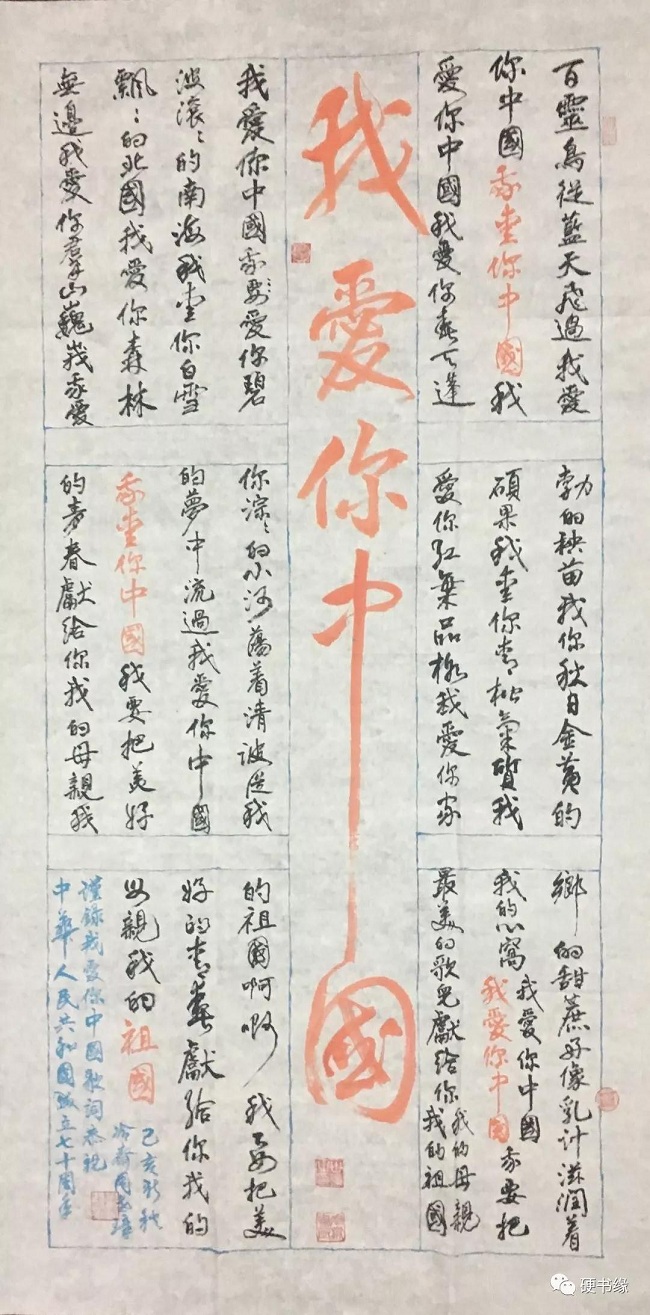 我愛你中國
百靈鳥從藍天飛過我愛
你中國我愛你中國我
愛你中國我愛你春天蓬
勃的秧苗我你秋日金黃的
碩果我愛你青松氣質我
愛你紅梅品格我愛你家
鄉的甜蔗好像乳汁滋潤着
我的心窩我愛你中國我愛你中國我要把
最美的歌兒獻給你我的母親我的祖國
我愛你中國我愛你碧
波滾〻的南海我愛你白雪
飄〻的北國我愛你森林
無邊我愛你群山巍峩我愛
你淙〻的小河蕩着清波從我
的夢中流過我愛你中國
我愛你中國我要把美好
的青春獻給你我的母親我
的祖國啊啊我要把美
好的青春獻給你我的
母親我的祖國
謹錄我愛你中國歌詞恭祝
中華人民共和國成立七十周年
己亥初秋
硬书缘